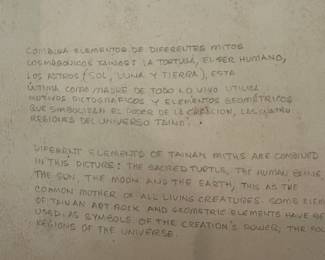 COMBINA ELEMENTOS DE DIFERENTES MITOS
COSMOGONICOS TAINOS: LA TORTUGA, EL SER HUMANO,
LOS ASTROS (SOL, LUNA Y TIERRA), ESTA
ULTIMA COMO MADRE DE TODO LO VIVO UTILIZA
MOTIVOS PICTOGRAFICOS Y ELEMENTOS GEOMETRICOS
QUE SIMBOLIZAN EL PODER DE LA CREACION, LAS CUATRO
REGIONES DEL UNIVERSO TAINO.
DIFERENT ELEMENTS OF TAINAN MITHS ARE COMBINED
IN THIS PICTURE: THE SACRED TURTLE, THE HUMAN BEING
THE SUN, THE MOON AND THE EARTH, THIS AS THE
COMMON MOTHER OF ALL LIVING CREATURES. SOME ELEM
OF TAINAN ART ROCK AND GEOMETRIC ELEMENTS HAVE BE
USED AS SYMBOLS OF THE CREATION'S POWER, THE FOU
REGIONS OF THE UNIVERSE.